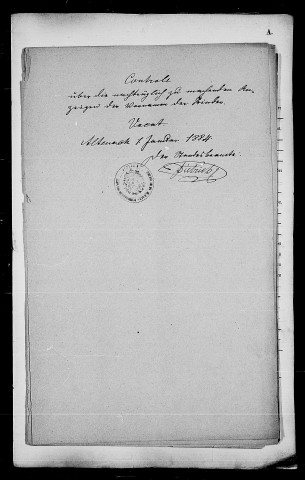 A.
Controle
über die nachträglich zu machenden An-
zeigen der Vornamen der Kinder.
Vacat
Altennak 8 Januar 1884
Der Standesbeamte.